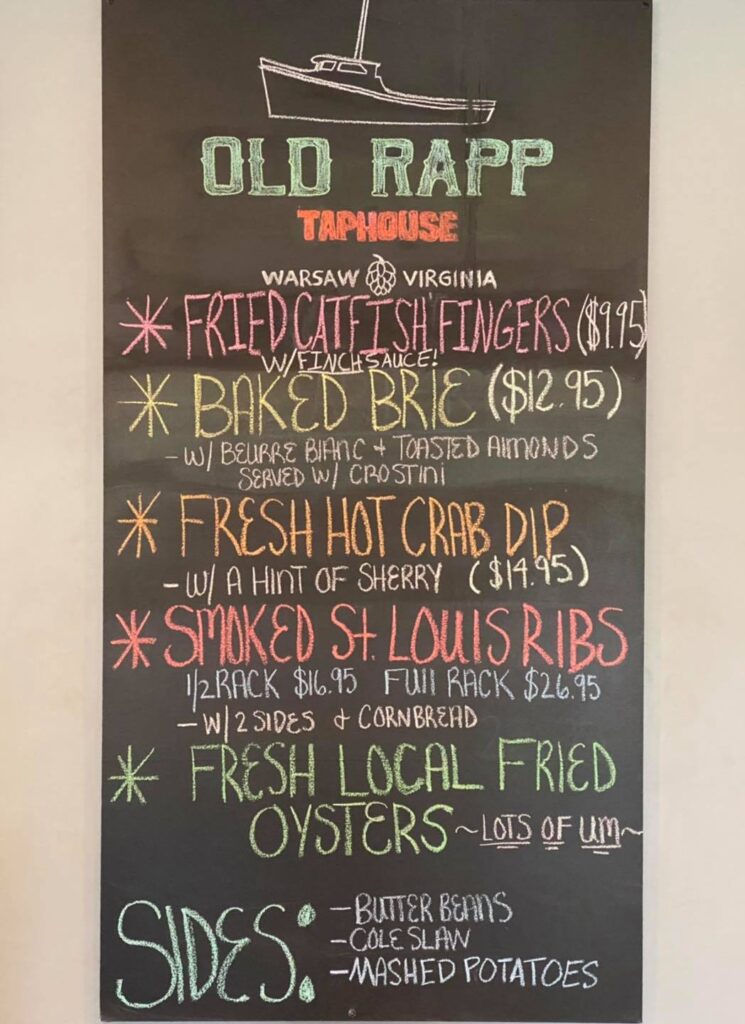 OLD RAPP
TAPHOUSE
WARSAW VIRGINIA
* FRIED CATFISH FINGERS ($9.95)
W/FINCH SAUCE!
* BAKED BRIE ($12.95)
- W/ BEURRE BLANC + TOASTED ALMONDS
SERVED W/ CROSTINI
* FRESH HOT CRAB DIP
- W/ A HINT OF SHERRY ($14.95)
* SMOKED St. LOUIS RIBS
1/2 RACK $16.95 FULL RACK $26.95
- W/ 2 SIDES + CORNBREAD
* FRESH LOCAL FRIED
OYSTERS ~LOTS OF UM~
SIDES:
- BUTTER BEANS
- COLE SLAW
- MASHED POTATOES